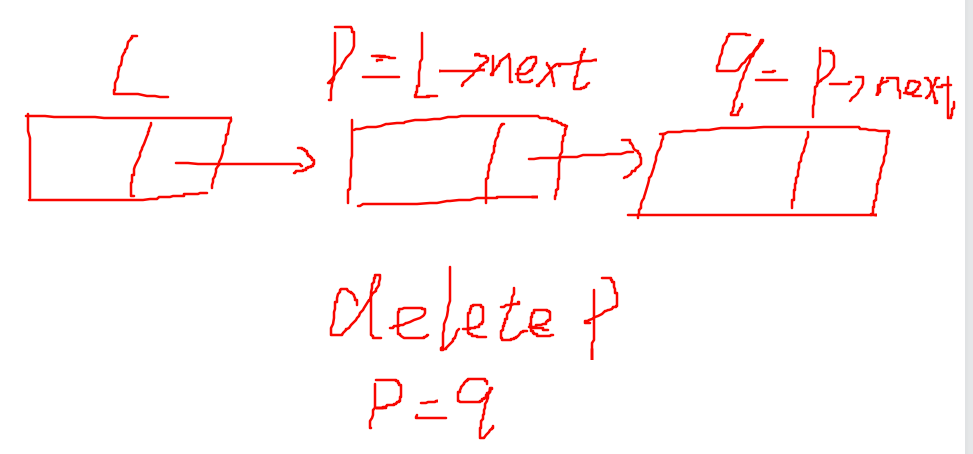 L
P=L→next
q=P→next
delete P
P=q